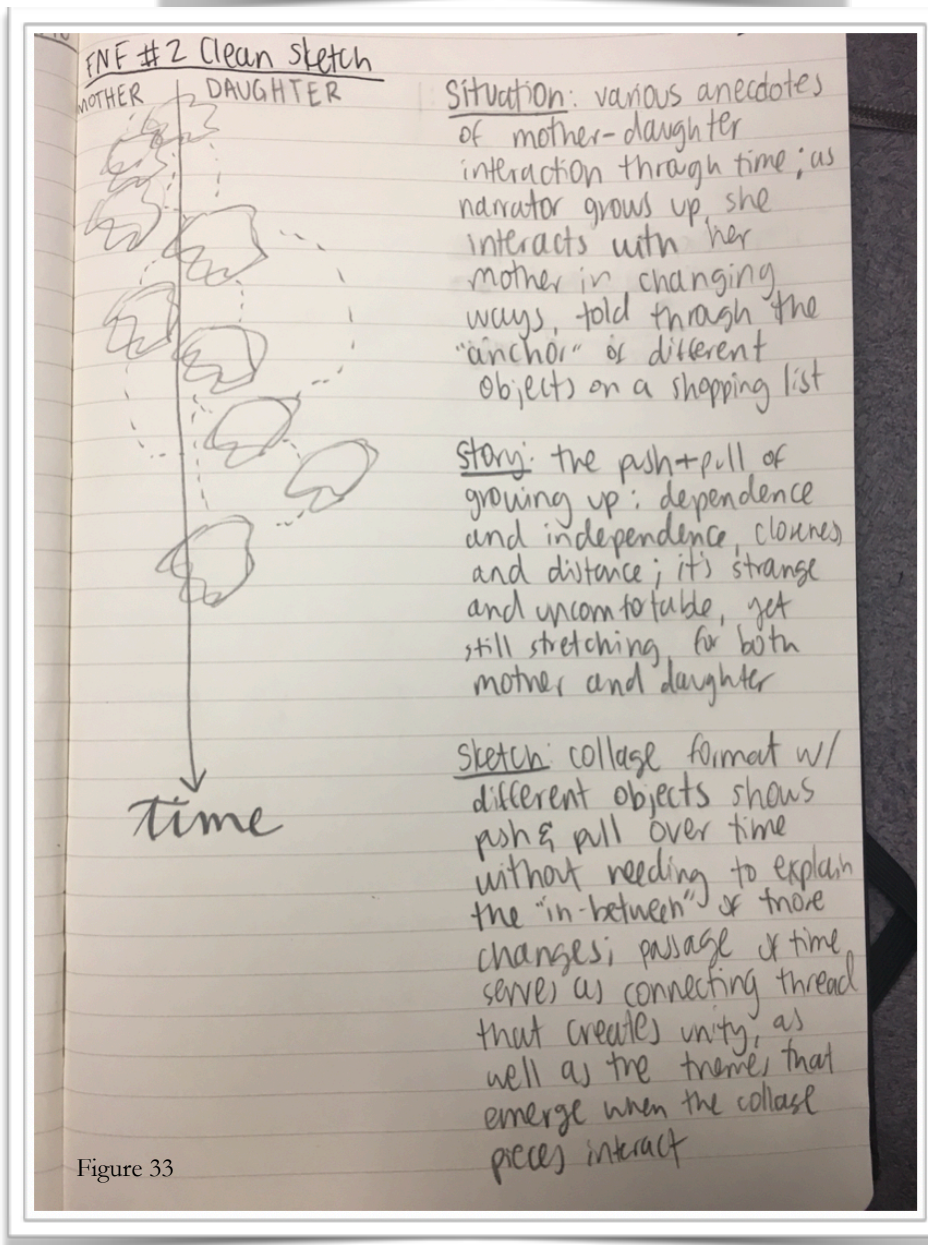 FNF #2 Clean Sketch
MOTHER
DAUGHTER
time
Situation: various anecdotes
of mother-daughter
interaction through time; as
narrator grows up, she
interacts with her
mother in changing
ways, told through the
"anchor" of different
objects on a shopping list
Story: the push+pull of
growing up: dependence
and independence, closenes
and distance; it's strange
and uncomfotable, yet
still stretching for both
mother and daughter
Sketch: collage format w/
different objects shows
push & pull over time
without needing to explain
the "in-between" of those
changes; passage of time
serves as connecting thread
that creates unity, as
well as the themes that
emerge when the collage
pieces interact
Figure 33